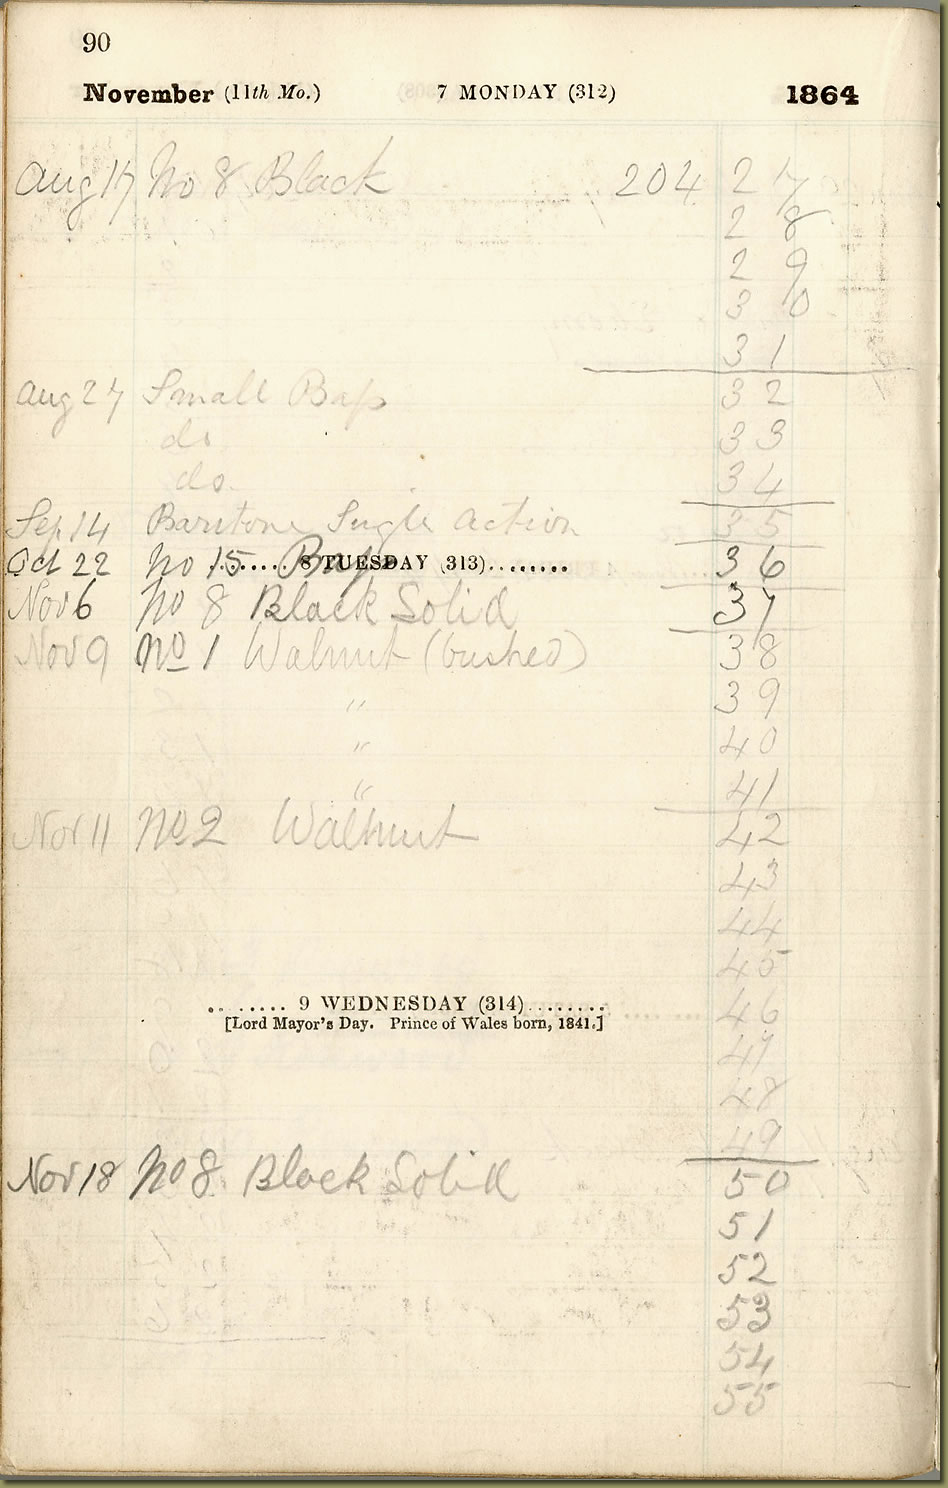 90
November (11th Mo.) 7 MONDAY (312) 1864
Aug 17 No 8 Black 204 27
28
29
30
31
Aug 27 Small Bass 32
do 33
do. 34
Sep 14 Baritone Single Action 35
Oct 22 No 15 Bass 36
........ 8 TUESDAY (313)........
Nov 6 No 8 Black Solid 37
Nov 9 No 1 Walnut (bushed) 38
" 39
" 40
" 41
Nov 11 No 2 Walnut 42
43
44
45
........ 9 WEDNESDAY (314)........ 46
[Lord Mayor's Day. Prince of Wales born, 1841.]
47
48
49
Nov 18 No 8 Black Solid 50
51
52
53
54
55